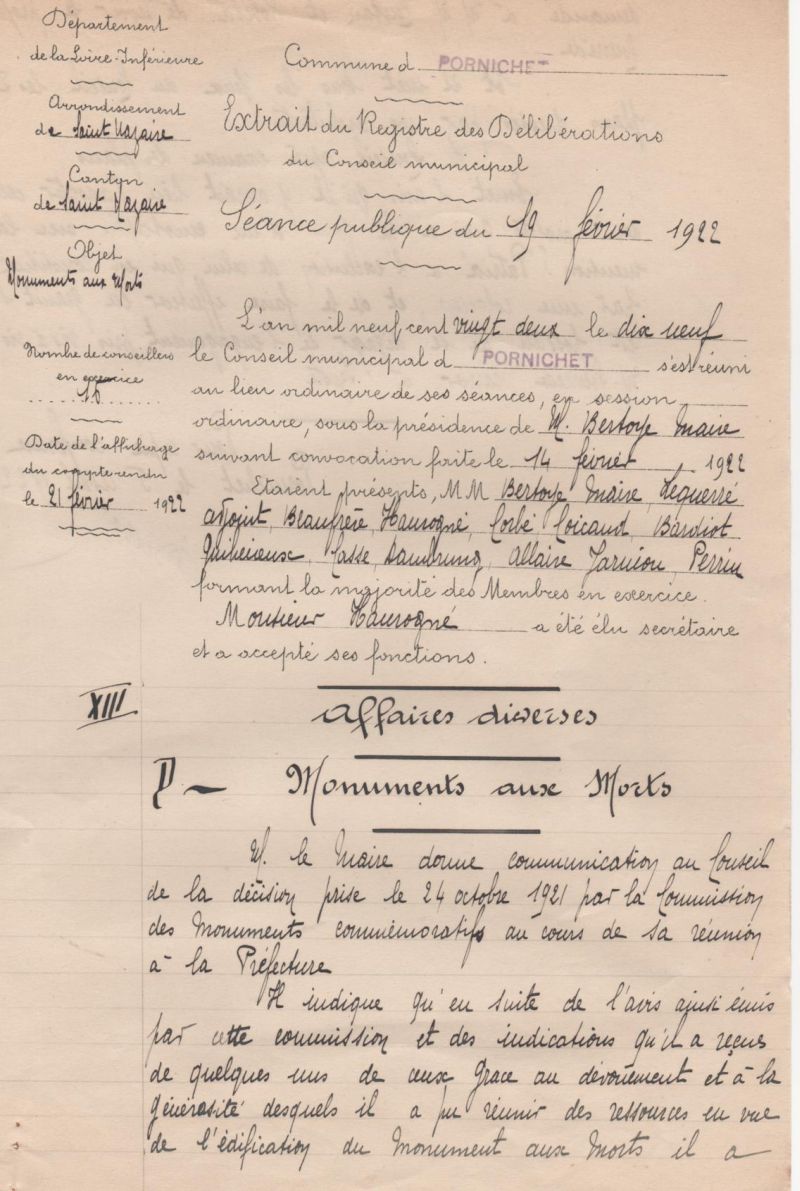 Département
de la Loire-Inférieure
Arrondissement
de Saint Nazaire
Canton
de Saint Nazaire
Objet
Monuments aux Morts
Nombre de conseillers
en exercice
Date de l'affichage
du compte rendu
le 21 février 1922
Commune d PORNICHET
Extrait du Registre des Délibérations
du Conseil municipal
Séance publique du 19 février 1922
L'an mil neuf cent vingt deux le dix neuf
le Conseil municipal d PORNICHET s'est réuni
au lieu ordinaire de ses séances, en session
ordinaire, sous la présidence de M. Bertoye Maire
suivant convocation faite le 14 février, 1922
Etaient présents, MM Bertoye Maire,
adjoint, Beaufrère, Haurogné, Corbé Coicaud, Bardiot
Casse, Allaire Perrin
formant la majorité des Membres en exercice.
Monsieur Haurogné a été élu secrétaire
et a accepté ses fonctions.
XIII Affaires diverses
Monuments aux Morts
M. le Maire donne communication au Conseil
de la décision prise le 24 octobre 1921 par la Commission
des Monuments commémoratifs au cours de sa réunion
à la Préfecture
Il indique qu'en suite de l'avis ainsi émis
par cette commission et des indications qu'il a reçues
de quelques uns de ceux Grace au dévouement et à la
générosité desquels il a pu réunir des ressources en vue
de l'édification du Monument aux Morts il a